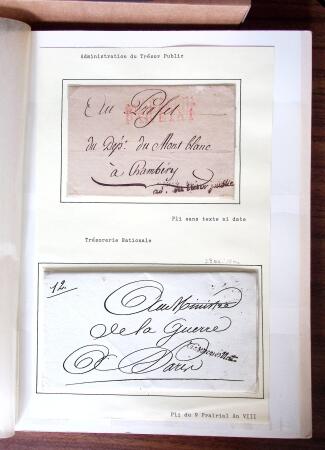 Administration du Trésor Public
Au Préfet
du Dép.t du Mont blanc
à Chambéry
ad. du tresor public
Pli sans texte ni date
Trésorerie Nationale
12.
Au Ministre
de la Guerre
à Paris
Pli du 9 Prairial An VIII